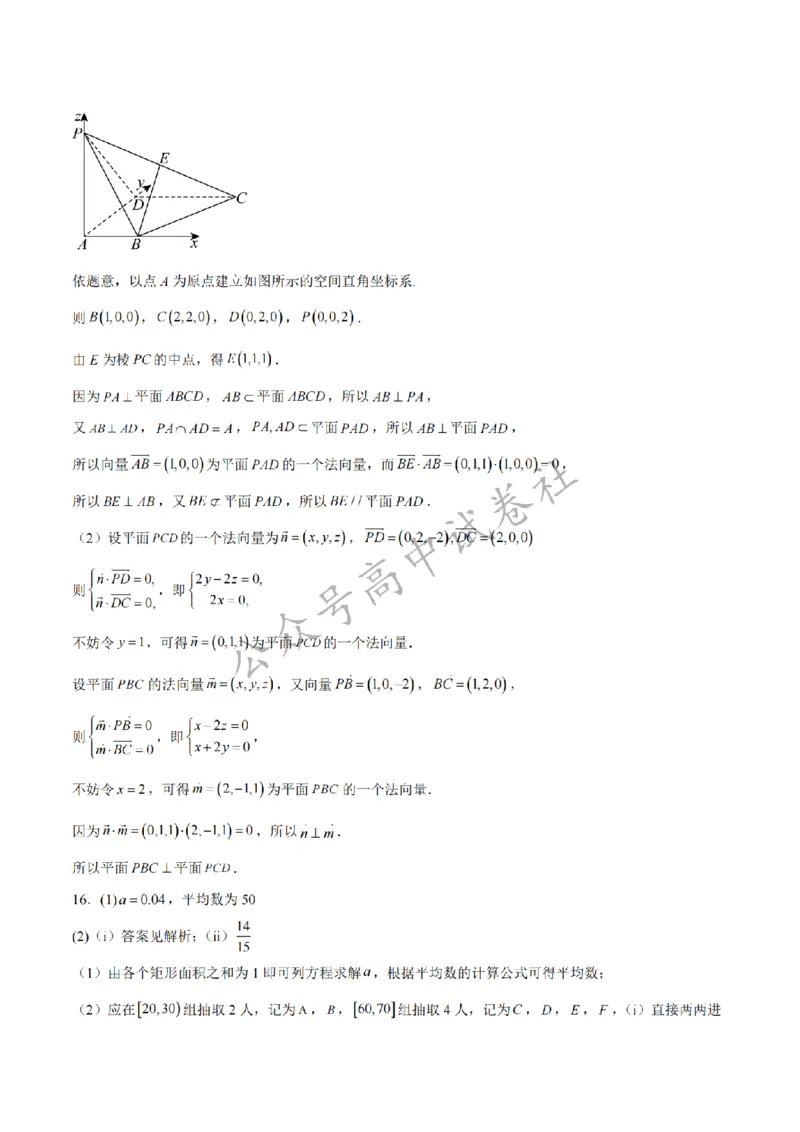 z
P
E
y
D
C
A
B
x
依题意，以点 A 为原点建立如图所示的空间直角坐标系.
则 B(1,0,0)，C(2,2,0)，D(0,2,0)，P(0,0,2).
由 E 为棱 PC 的中点，得 E(1,1,1).
因为 PA⊥平面 ABCD，AB⊂平面 ABCD，所以 AB⊥PA，
又 AB⊥AD，PA∩AD=A，PA,AD⊂平面 PAD，所以 AB⊥平面 PAD，
所以向量 AB=(1,0,0) 为平面 PAD 的一个法向量，而 BE·AB=(0,1,1)·(1,0,0)=0，
所以 BE⊥AB，又 BE⊄平面 PAD，所以 BE//平面 PAD.
（2）设平面 PCD 的一个法向量为 n⃗=(x,y,z)，PD=(0,2,−2),DC=(2,0,0)
则 {n⃗·PD=0, n⃗·DC=0, ，即 {2y−2z=0, 2x=0,
不妨令 y=1，可得 n⃗=(0,1,1) 为平面 PCD 的一个法向量.
设平面 PBC 的法向量 m⃗=(x,y,z)，又向量 PB=(1,0,−2)，BC=(1,2,0)，
则 {m⃗·PB=0 m⃗·BC=0 ，即 {x−2z=0 x+2y=0 ，
不妨令 x=2，可得 m⃗=(2,−1,1) 为平面 PBC 的一个法向量.
因为 n⃗·m⃗=(0,1,1)·(2,−1,1)=0，所以 n⃗⊥m⃗.
所以平面 PBC⊥平面 PCD.
16．(1) a=0.04，平均数为 50
(2)（i）答案见解析；（ii）14/15
（1）由各个矩形面积之和为 1 即可列方程求解 a，根据平均数的计算公式可得平均数；
（2）应在 [20,30) 组抽取 2 人，记为 A，B，[60,70] 组抽取 4 人，记为 C，D，E，F，（i）直接两两进
公众号高中试卷社